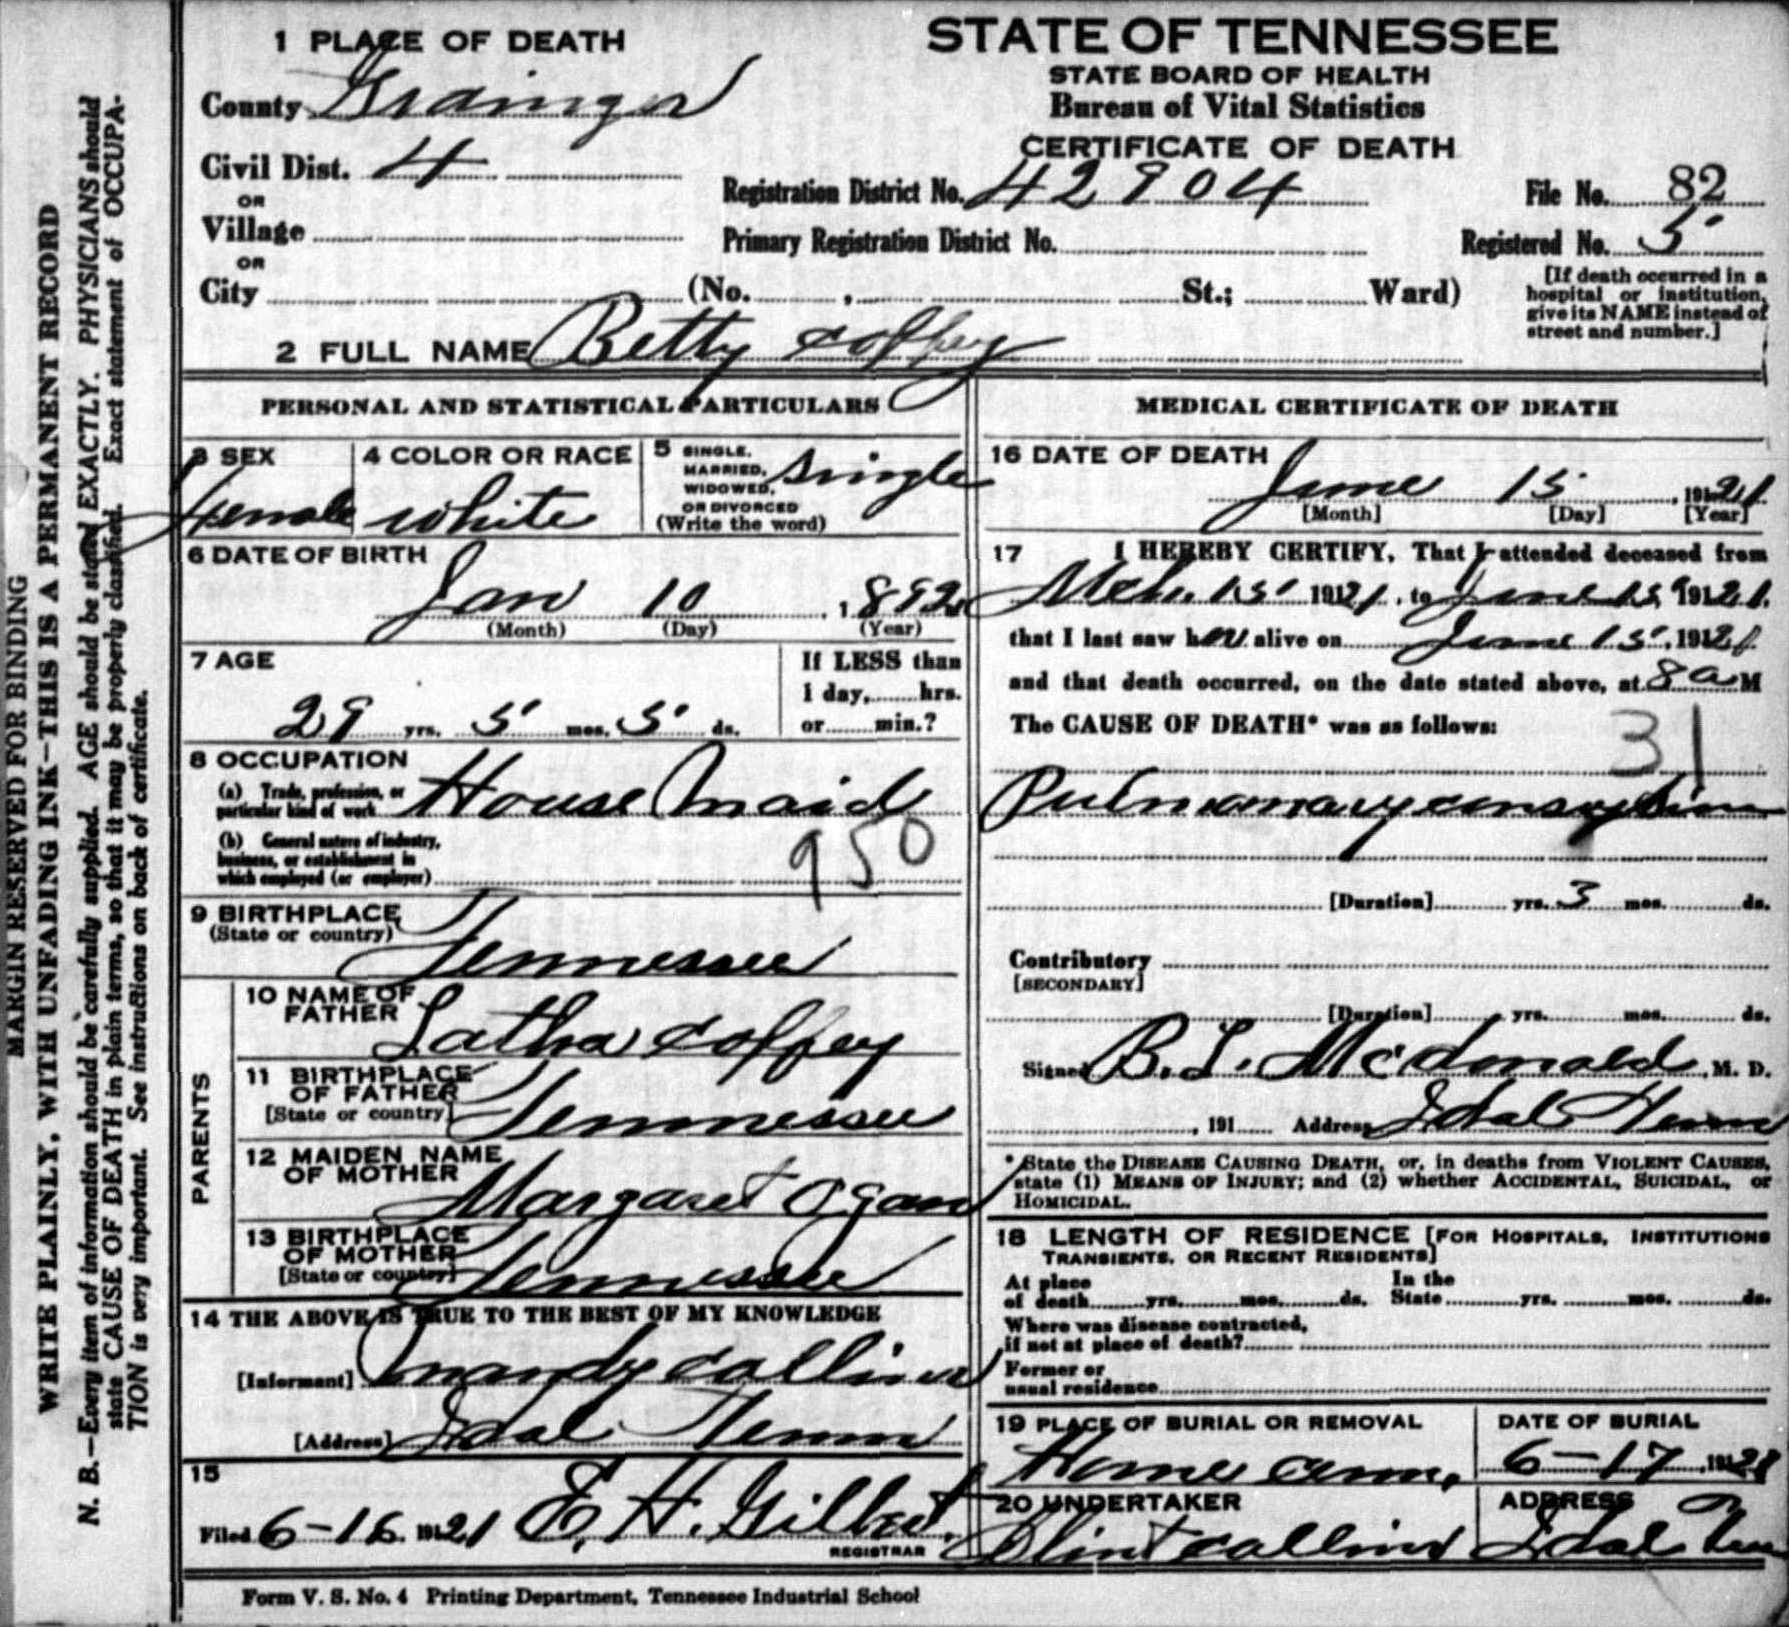 1 PLACE OF DEATH
County Grainger
Civil Dist. 4
OR
Village
OR
City (No. , St.; Ward)
STATE OF TENNESSEE
STATE BOARD OF HEALTH
Bureau of Vital Statistics
CERTIFICATE OF DEATH
Registration District No. 42904
File No. 82
Primary Registration District No.
Registered No. 5
[If death occurred in a
hospital or institution,
give its NAME instead of
street and number.]
2 FULL NAME Betty Coffey
PERSONAL AND STATISTICAL PARTICULARS
3 SEX
Female
4 COLOR OR RACE
White
5 SINGLE,
MARRIED,
WIDOWED,
OR DIVORCED
(Write the word)
Single
6 DATE OF BIRTH
Jan 10, 1892
(Month) (Day) (Year)
7 AGE
29 yrs. 5 mos. 5 ds.
If LESS than
1 day, hrs.
or min.?
8 OCCUPATION
(a) Trade, profession, or
particular kind of work House Maid
(b) General nature of industry,
business, or establishment in
which employed (or employer)
950
9 BIRTHPLACE
(State or country)
Tennessee
PARENTS
10 NAME OF
FATHER
Latha Coffey
11 BIRTHPLACE
OF FATHER
[State or country]
Tennessee
12 MAIDEN NAME
OF MOTHER
Margaret Ogan
13 BIRTHPLACE
OF MOTHER
[State or country]
Tennessee
14 THE ABOVE IS TRUE TO THE BEST OF MY KNOWLEDGE
[Informant] Mandy Collins
[Address] Idol Tenn
15
Filed 6-16 1921 E. H. Gilbert
REGISTRAR
MEDICAL CERTIFICATE OF DEATH
16 DATE OF DEATH
June 15, 1921
[Month] [Day] [Year]
17 I HEREBY CERTIFY, That I attended deceased from
Mch. 15 1921, to June 15, 1921,
that I last saw her alive on June 15, 1921
and that death occurred, on the date stated above, at 8 a M
The CAUSE OF DEATH* was as follows:
31
Pulmonary
[Duration] yrs. 3 mos. ds.
Contributory
[SECONDARY]
[Duration] yrs. mos. ds.
Signed B. L. McDonald, M. D.
, 191 Address Idol Tenn
* State the DISEASE CAUSING DEATH, or, in deaths from VIOLENT CAUSES,
state (1) MEANS OF INJURY; and (2) whether ACCIDENTAL, SUICIDAL, or
HOMICIDAL.
18 LENGTH OF RESIDENCE [FOR HOSPITALS, INSTITUTIONS
TRANSIENTS, OR RECENT RESIDENTS]
At place
of death yrs. mos. ds.
In the
State yrs. mos. ds.
Where was disease contracted,
if not at place of death?
Former or
usual residence
19 PLACE OF BURIAL OR REMOVAL
Home cem.
DATE OF BURIAL
6-17, 1921
20 UNDERTAKER
Clint Collins
ADDRESS
Idol Tenn
Form V. S. No. 4 Printing Department, Tennessee Industrial School
MARGIN RESERVED FOR BINDING
WRITE PLAINLY, WITH UNFADING INK—THIS IS A PERMANENT RECORD
N. B.—Every item of information should be carefully supplied. AGE should be stated EXACTLY. PHYSICIANS should
state CAUSE OF DEATH in plain terms, so that it may be properly classified. Exact statement of OCCUPA-
TION is very important. See instructions on back of certificate.